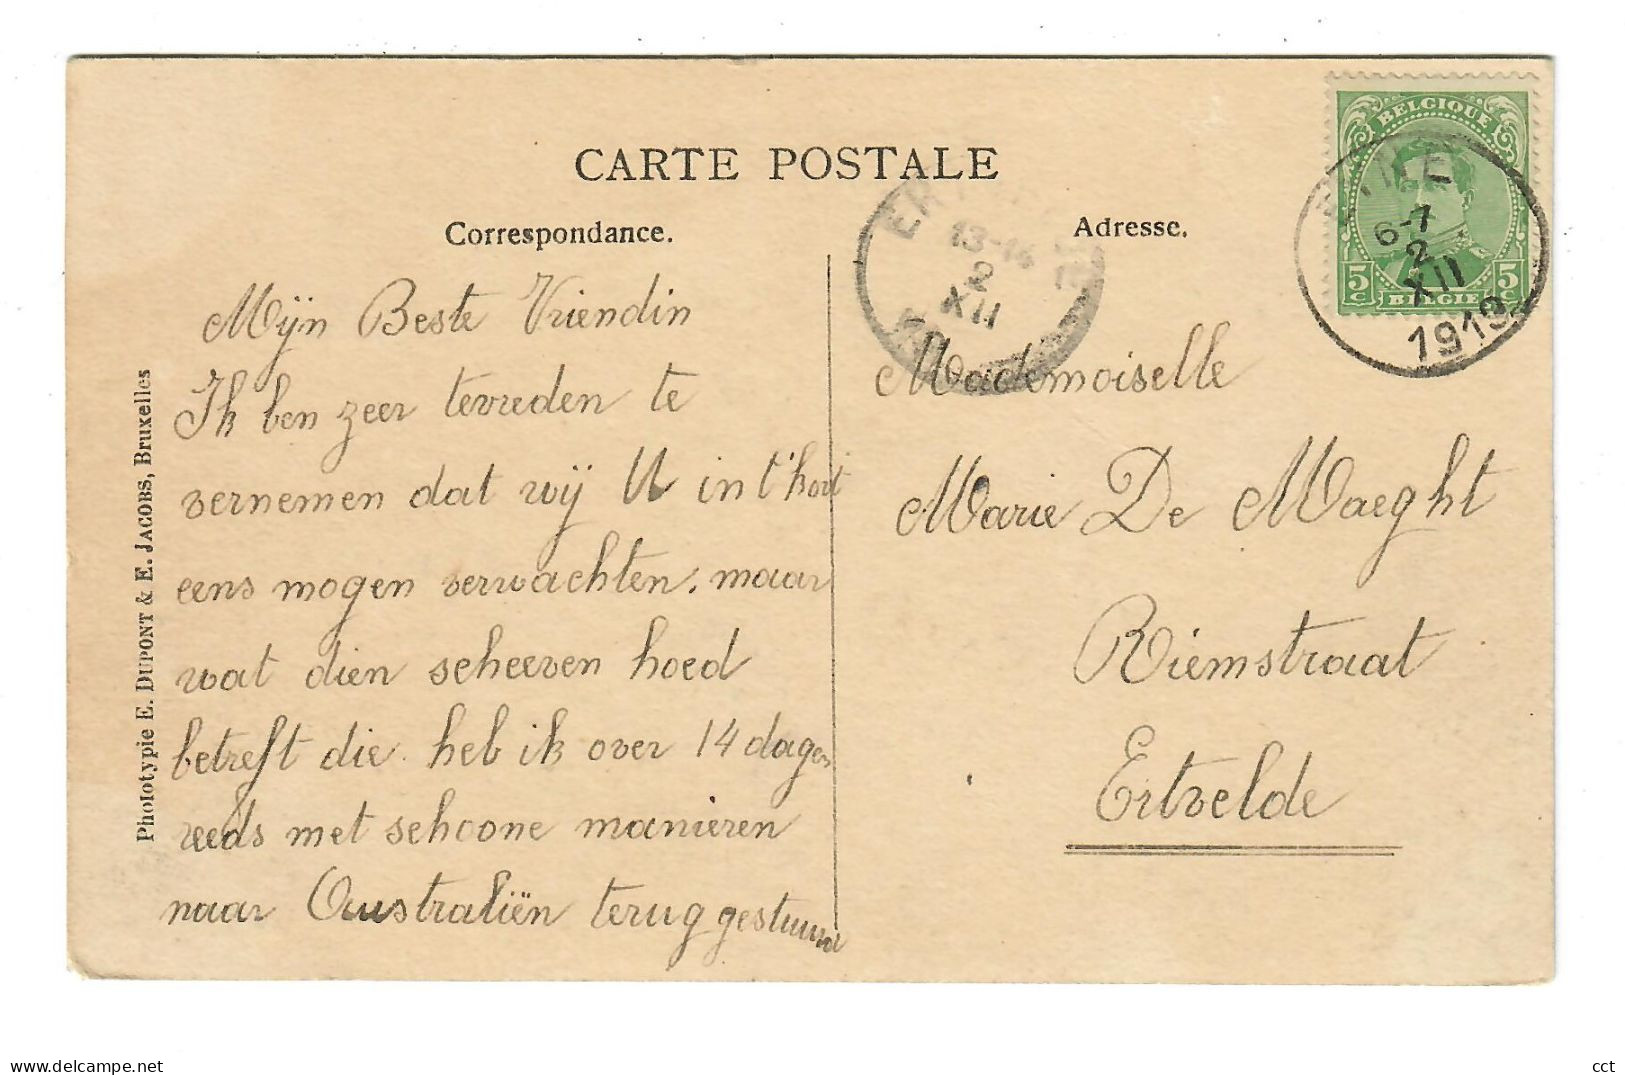 CARTE POSTALE
Correspondance.
Adresse.
Mijn Beste Vriendin
Ik ben zeer tevreden te
vernemen dat wij U in t'kort
eens mogen verwachten, maar
wat dien scheeven hoed
betreft die heb ik over 14 dagen
reeds met schoone manieren
naar Oustraliën terug gestuurd
Mademoiselle
Marie De Maeght
Riemstraat
Ertvelde
Phototypie E. DUPONT & E. JACOBS, Bruxelles
BELGIQUE
5c 5c
BELGIE
6-7
2
XII
1919
13-14
2
XII
delcampe.net
cct